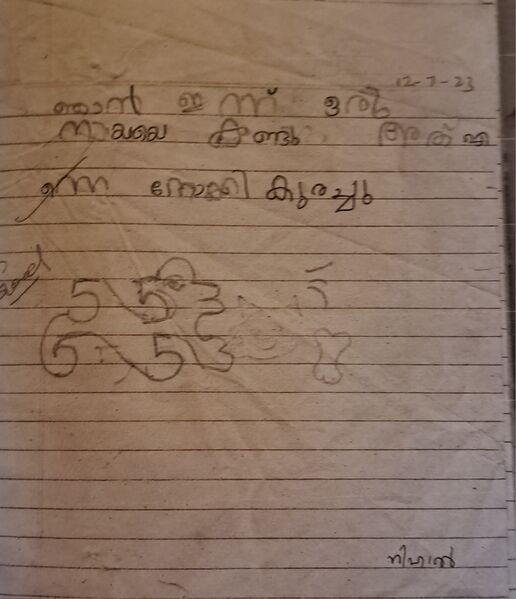 12-7-23
ഞാൻ ഇന്ന് ഒരു
നായയെ കണ്ടു അത് എ
ന്ന നോക്കി കുരച്ചു
5 5 3
5 5 3
നിഹാൽ